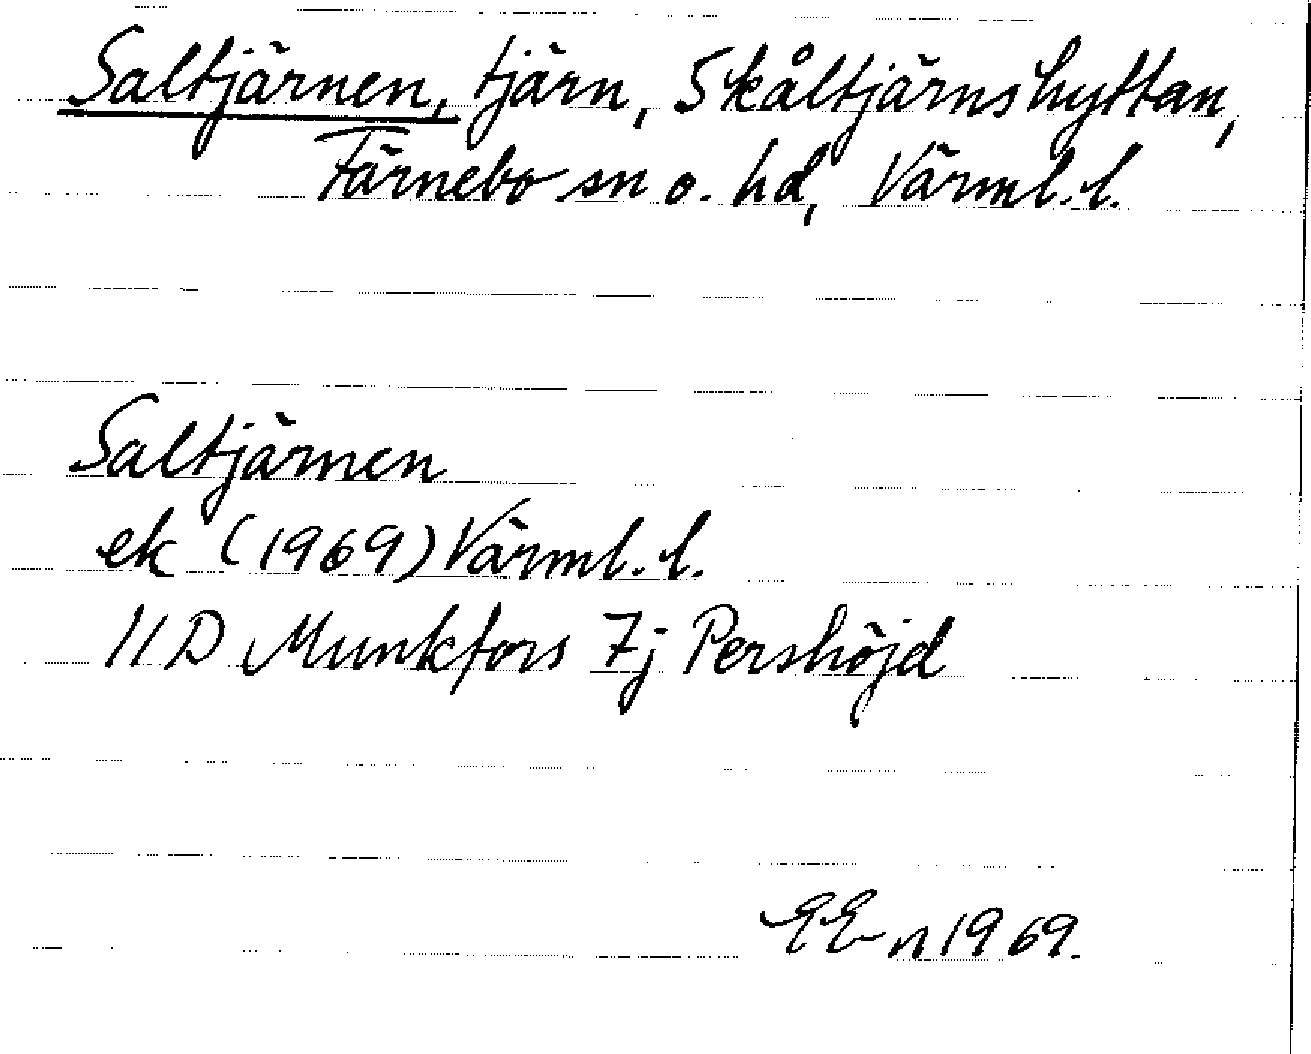 Saltjärnen, tjärn, Skåltjärnshyttan,
Färnebo sn o. hd, Värml. l.
Saltjärnen
ek (1969) Värml. l.
11D Munkfors 7j Pershöjd
EEn 1969.